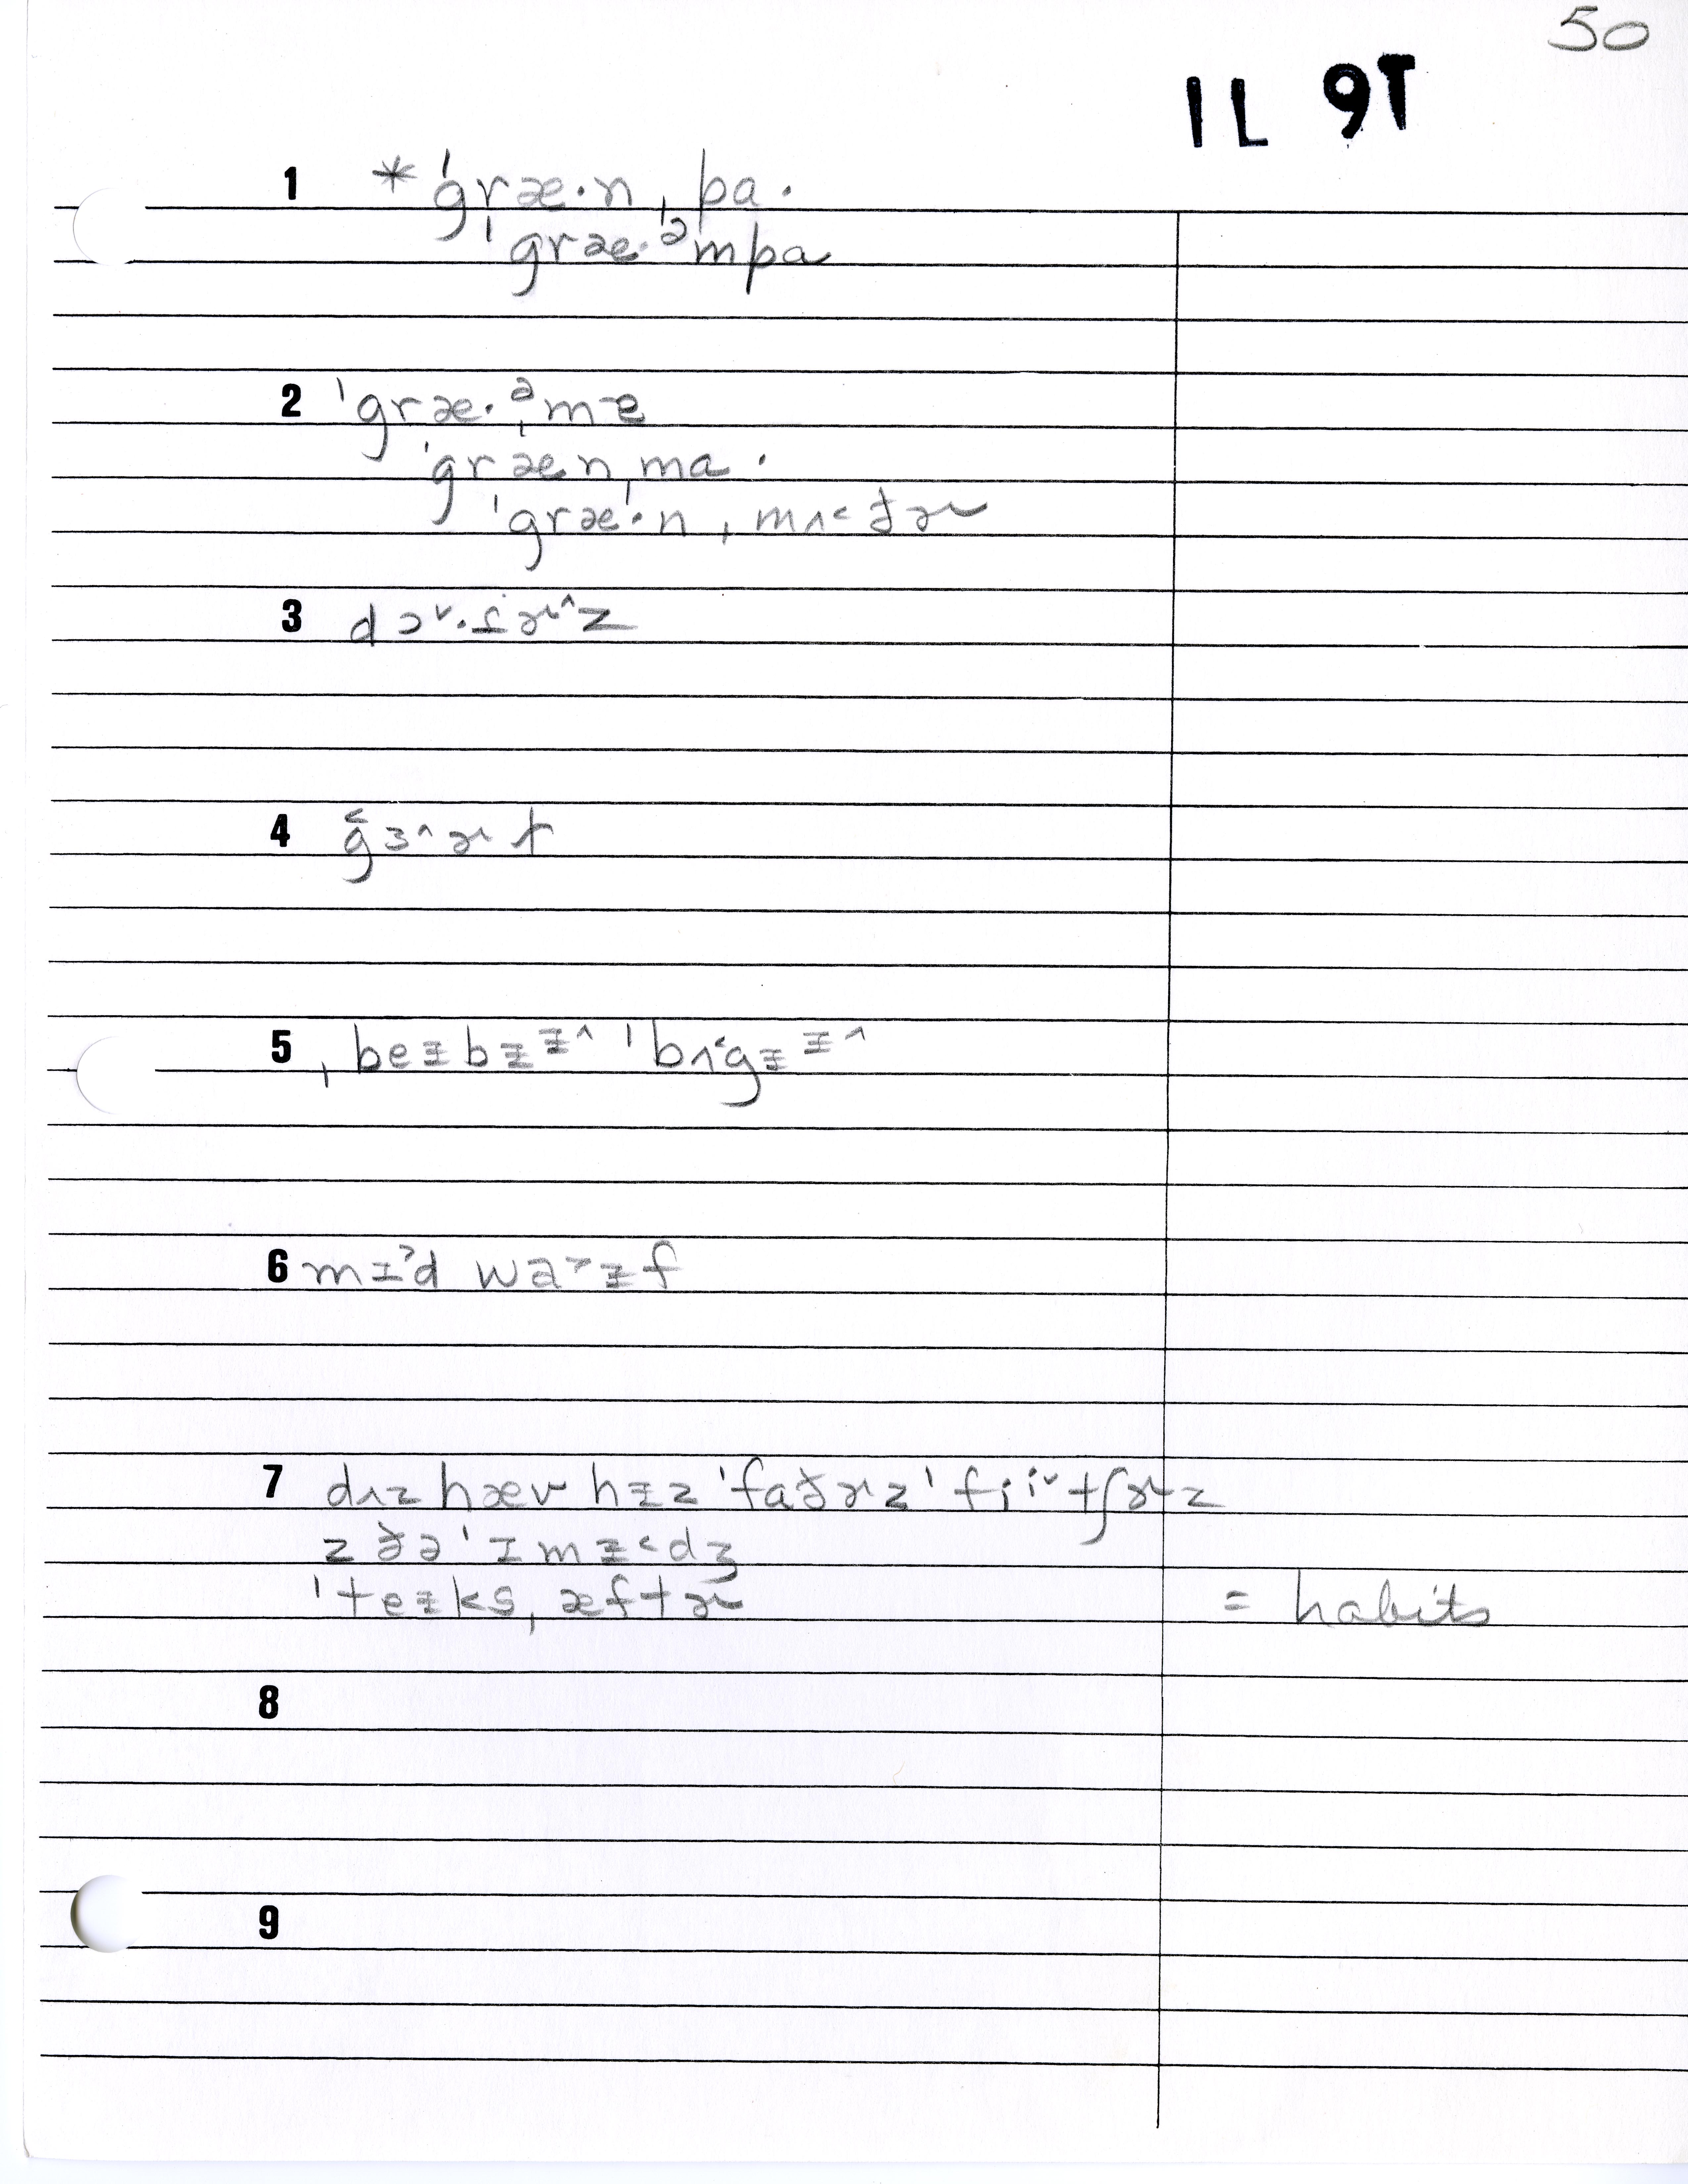 50
IL 9T
1 *ˈgræ·nˌpa·
ˈgræ·ᵊmpa
2 ˈgræ·ᵊmɐ
ˈgrænˌma·
ˈgræ·nˌmʌ˂ðɚ
3 dɔ˅·tɚ˄z
4 g˂ɜ˄ɚt
5 ˌbeɪbɪɪ˄ ˈbʌ˂gɪɪ˄
6 mɪ˃d wa˃ɪf
7 dʌz hæv hɪz ˈfaðɚz ˈfiiˇtʃɚz
z ðə ˈɪmɪ˂dʒ
ˈteɪksˌæftɚ = habits
8
9